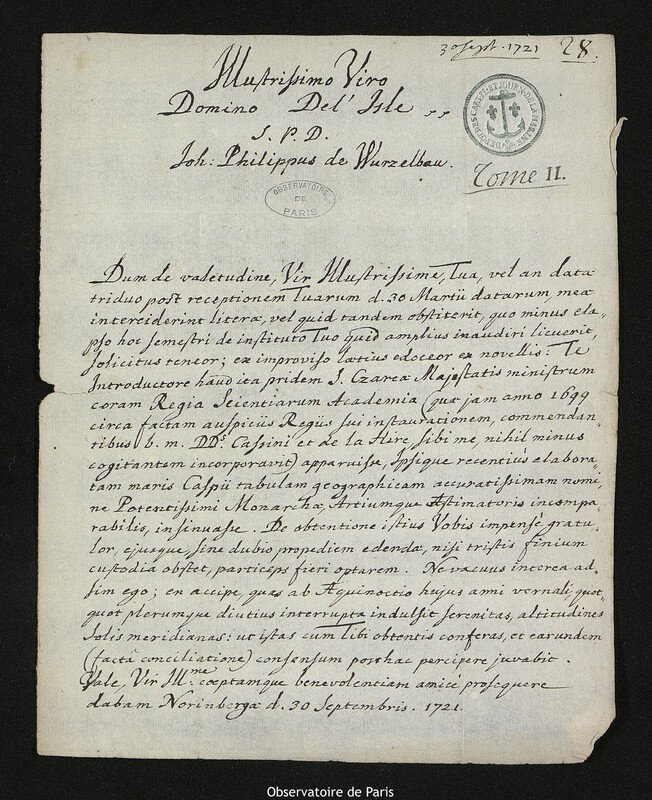 30 Sept. 1721
28.
Illustrissimo Viro
Domino Del' Isle
S. P. D.
Joh: Philippus de Wurzelbau.
DEPOT DES CARTES PL. ET JOURN. DE LA MARINE
Tome II.
OBSERVATOIRE
DE
PARIS
Dum de valetudine, Vir Illustrissime, Tua, vel an datæ
triduo post receptionem Tuarum d. 30 Martii datarum, meæ
interciderint literæ, vel quid tandem obstiterit, quo minus ela-
pso hoc semestri de instituto Tuo quid amplius inaudiri licuerit,
solicitus teneor; ex improviso lætius edoceor ex novellis: Te
Introductore haud ita pridem S. Czareæ Majestatis ministrum
coram Regia Scientiarum Academia (quæ jam anno 1699
circa factam auspiciis Regiis sui instaurationem, commendan-
tibus b. m. DDs. Cassini et de la Hire, sibi me, nihil minus
cogitantem incorporavit) apparuisse, Ipsique recentius elabora-
tam maris Caspii tabulam geographicam accuratissimam nomi-
ne Potentissimi Monarchæ, Artiumque Æstimatoris incompa-
rabilis, insinuasse. De obtentione istius Vobis impensè gratu-
lor, ejusque, sine dubio propediem edendæ, nisi tristis finium
custodia obstet, particeps fieri optarem. Ne vacuus interea ad-
sim ego; en accipe, quas ab Æquinoctio hujus anni vernali, quot-
quot plerumque diutius interrupta indulsit serenitas, altitudines
Solis meridianas: ut istas cum Tibi obtentis conferas, et earundem
(factâ conciliatione) consensum posthac percipere juvabit.
Vale, Vir Ill.me cæptamque benevolentiam amicè prosequere
dabam Norinbergæ d. 30 Septembris. 1721.
Observatoire de Paris